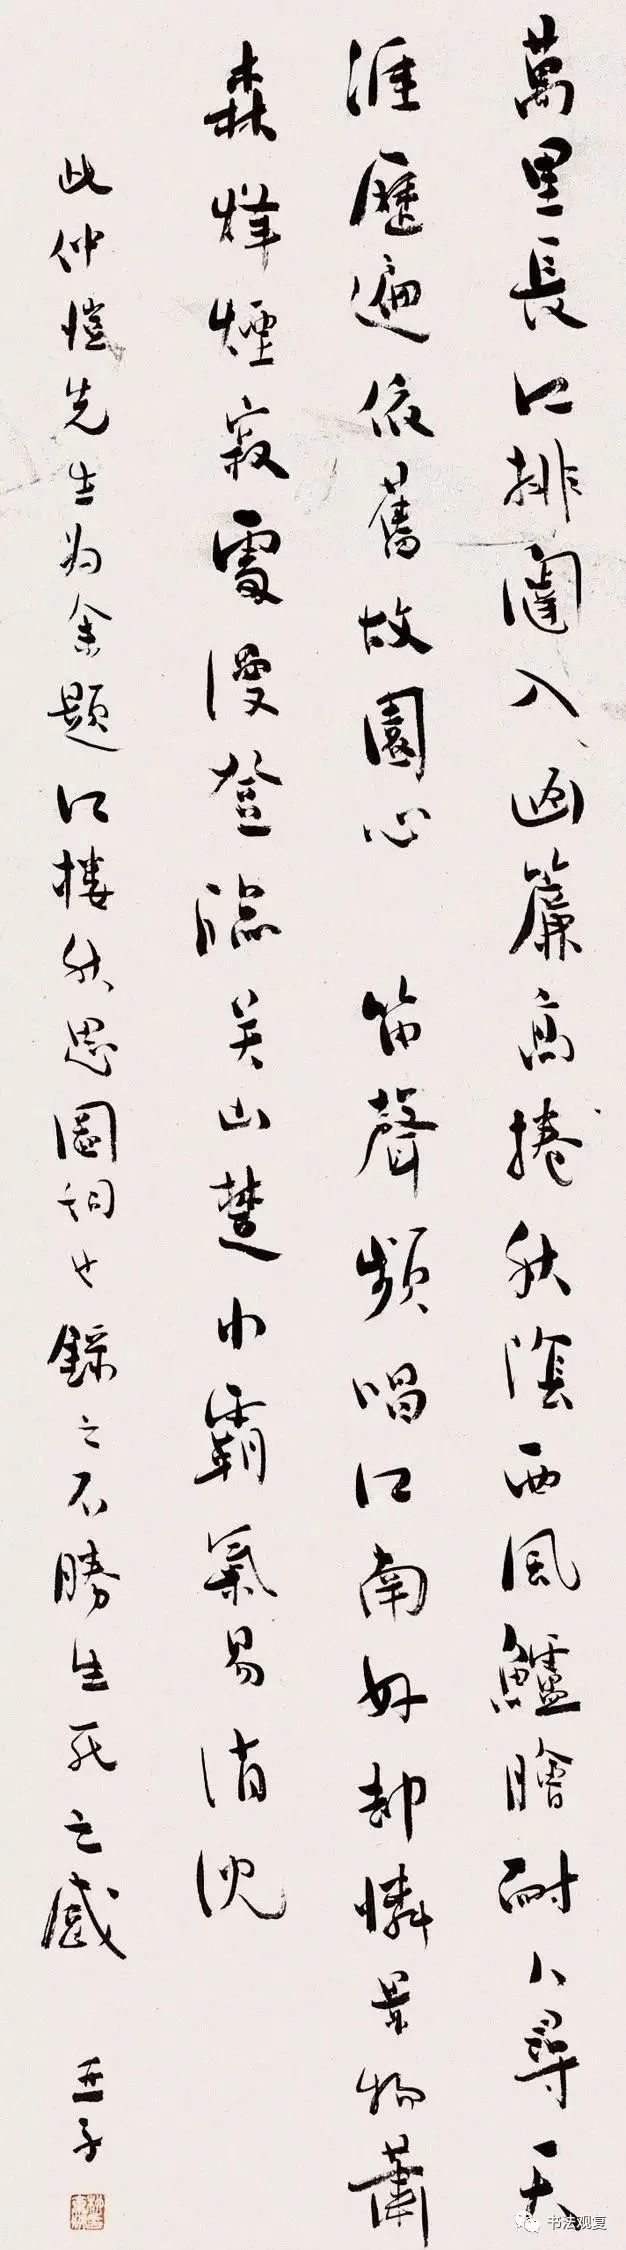 萬里長江排闥入畫簾高捲秋陰西風鱸膾耐人尋天
涯歷遍依舊故園心　笛聲頻唱江南好却憐景物蕭
森烽煙寂處漫登臨关山楚水霸氣易消沈
此仲愷先生為余題江樓秋思圖詞也錄之不勝生死之感
亞子
书法观复